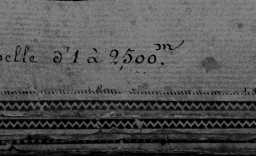 elle d'1 à 2,500.m